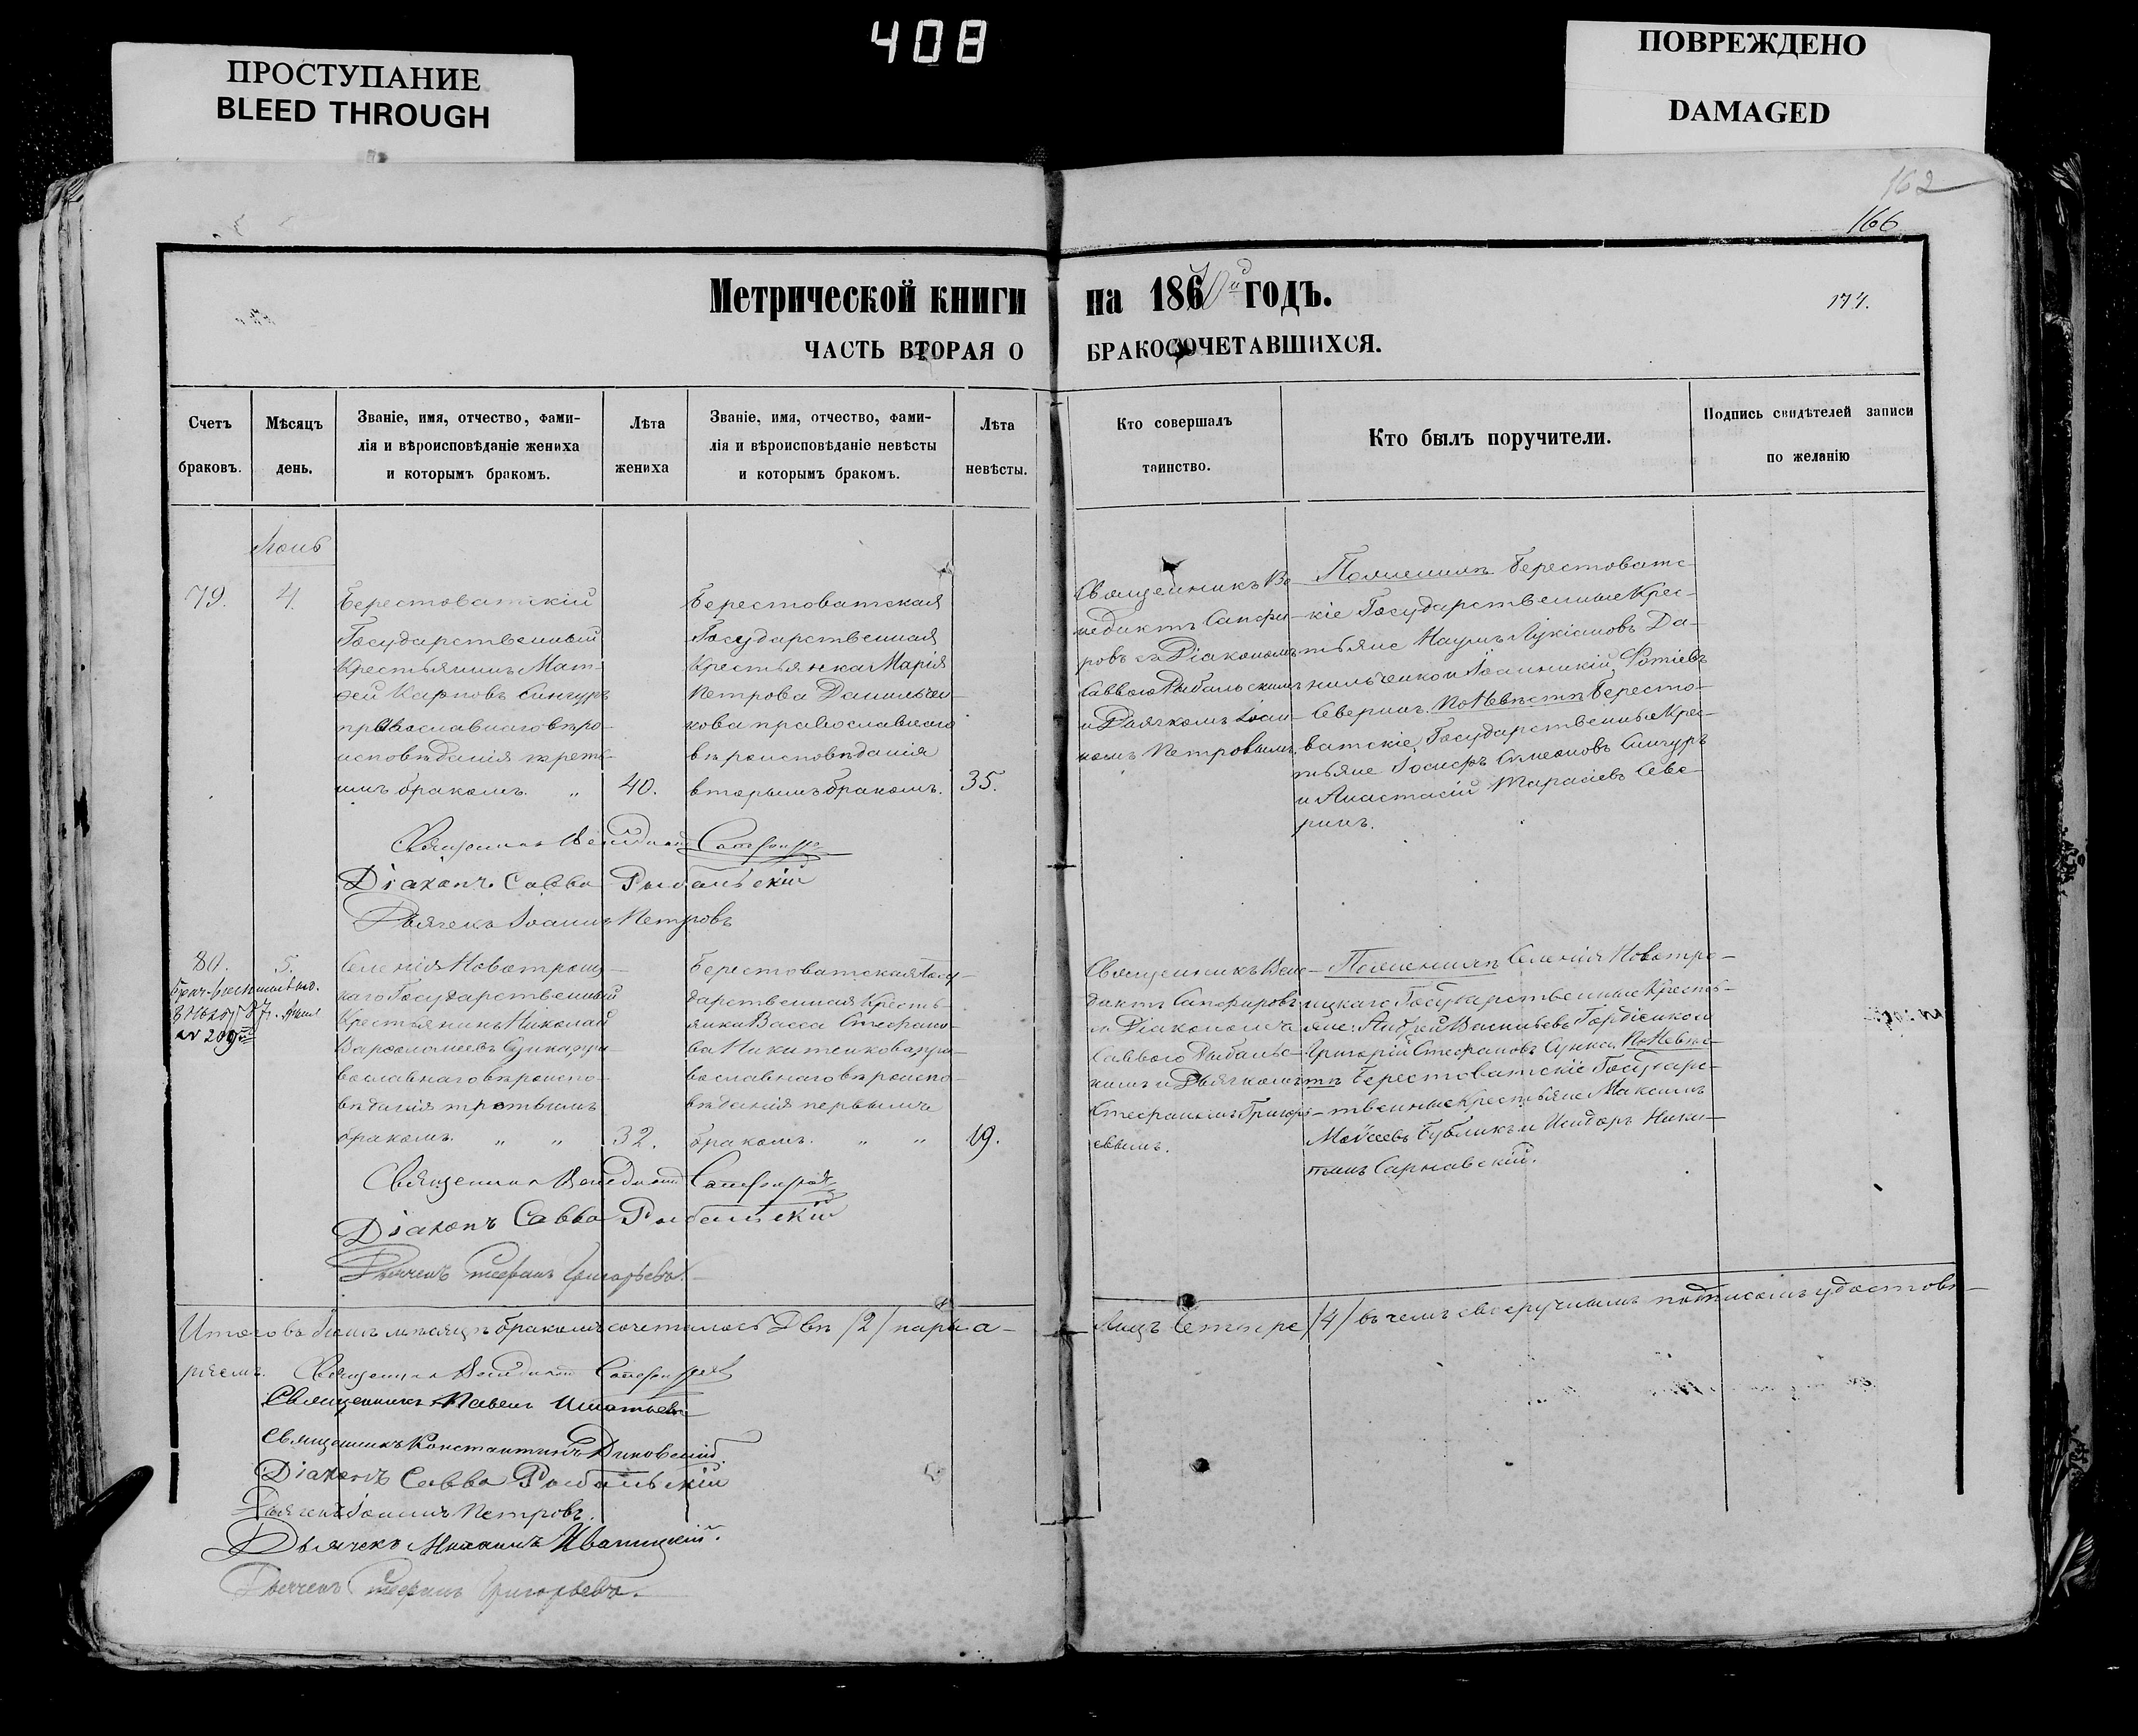 408
ПРОСТУПАНИЕ
BLEED THROUGH
ПОВРЕЖДЕНО
DAMAGED
162
166
Метрической книги на 1870 годъ.
174.
ЧАСТЬ ВТОРАЯ О БРАКОСОЧЕТАВШИХСЯ.
Счетъ браковъ.
Мѣсяцъ день.
Званіе, имя, отчество, фами-
лія и вѣроисповѣданіе жениха
и которымъ бракомъ.
Лѣта жениха
Званіе, имя, отчество, фами-
лія и вѣроисповѣданіе невѣсты
и которымъ бракомъ.
Лѣта невѣсты.
Кто совершалъ
таинство.
Кто былъ поручители.
Подпись свидѣтелей записи
по желанію
79.
4.
Берестоватскій
Государственный
Крестьянинъ Мат-
фей Карповъ Сингуръ
православнаго вѣро-
исповѣданія треть-
имъ бракомъ. „
40.
Берестоватская
Государственная
Крестьянка Марія
Петрова Данильчен-
кова православнаго
вѣроисповѣданія
вторымъ бракомъ.
35.
Священникъ Ве-
недиктъ Сапфи-
ровъ съ Діакономъ
Саввою Рыбальскимъ
и Дьячкомъ Іоан-
номъ Петровымъ.
По женихѣ Берестоватс-
кіе Государственные Крес-
тьяне Наумъ Лукіановъ Да-
нильченко и Іоанникій Фотіевъ
Северинъ. По Невѣстѣ Бересто-
ватскіе Государственные Крес-
тьяне Іосифъ Симеоновъ Сингуръ
и Анастасій Тарасіевъ Севе-
ринъ.
Священникъ Венедиктъ Сапфировъ
Діаконъ Савва Рыбальскій
Дьячекъ Іоаннъ Петровъ
80.
5.
209
Селенія Новотроиц-
каго Государственный
Крестьянинъ Николай
Варфоломеевъ Супка пра-
вославнаго вѣроиспо-
вѣданія третьимъ
бракомъ. „ „
32.
Берестоватская Госу-
дарственная Кресть-
янка Васса Стефано-
ва Никитенкова пра-
вославнаго вѣроиспо-
вѣданія первымъ
бракомъ. „ „
19.
Священникъ Вене-
диктъ Сапфировъ
съ Діакономъ
Саввою Рыбальс-
кимъ и Дьячкомъ
Стефаномъ Григорь-
евымъ.
По женихѣ Селенія Новотро-
ицкаго Государственные Кресть-
яне: Андрей Васильевъ Гордіенко и
Григорій Стефановъ Супка. По Невѣс-
тѣ Берестоватскіе Государс-
твенные Крестьяне Максимъ
Моѵсеевъ Бубликъ и Исидоръ Ники-
тинъ Сарнавскій.
Священникъ Венедиктъ Сапфировъ
Діаконъ Савва Рыбальскій
Дьячекъ Стефанъ Григорьевъ.
Итого въ мѣсяцѣ бракомъ сочеталось Двѣ /2/ пары а-
лицъ Четыре /4/ въ чемъ своеручнымъ подписомъ удостовѣ-
ряемъ. Священникъ Венедиктъ Сапфировъ
Священникъ Павелъ Игнатьевъ
Священникъ Константинъ Диковскій
Діаконъ Савва Рыбальскій
Дьячекъ Іоаннъ Петровъ.
Дьячекъ Михаилъ Иваницкій.
Дьячекъ Стефанъ Григорьевъ.